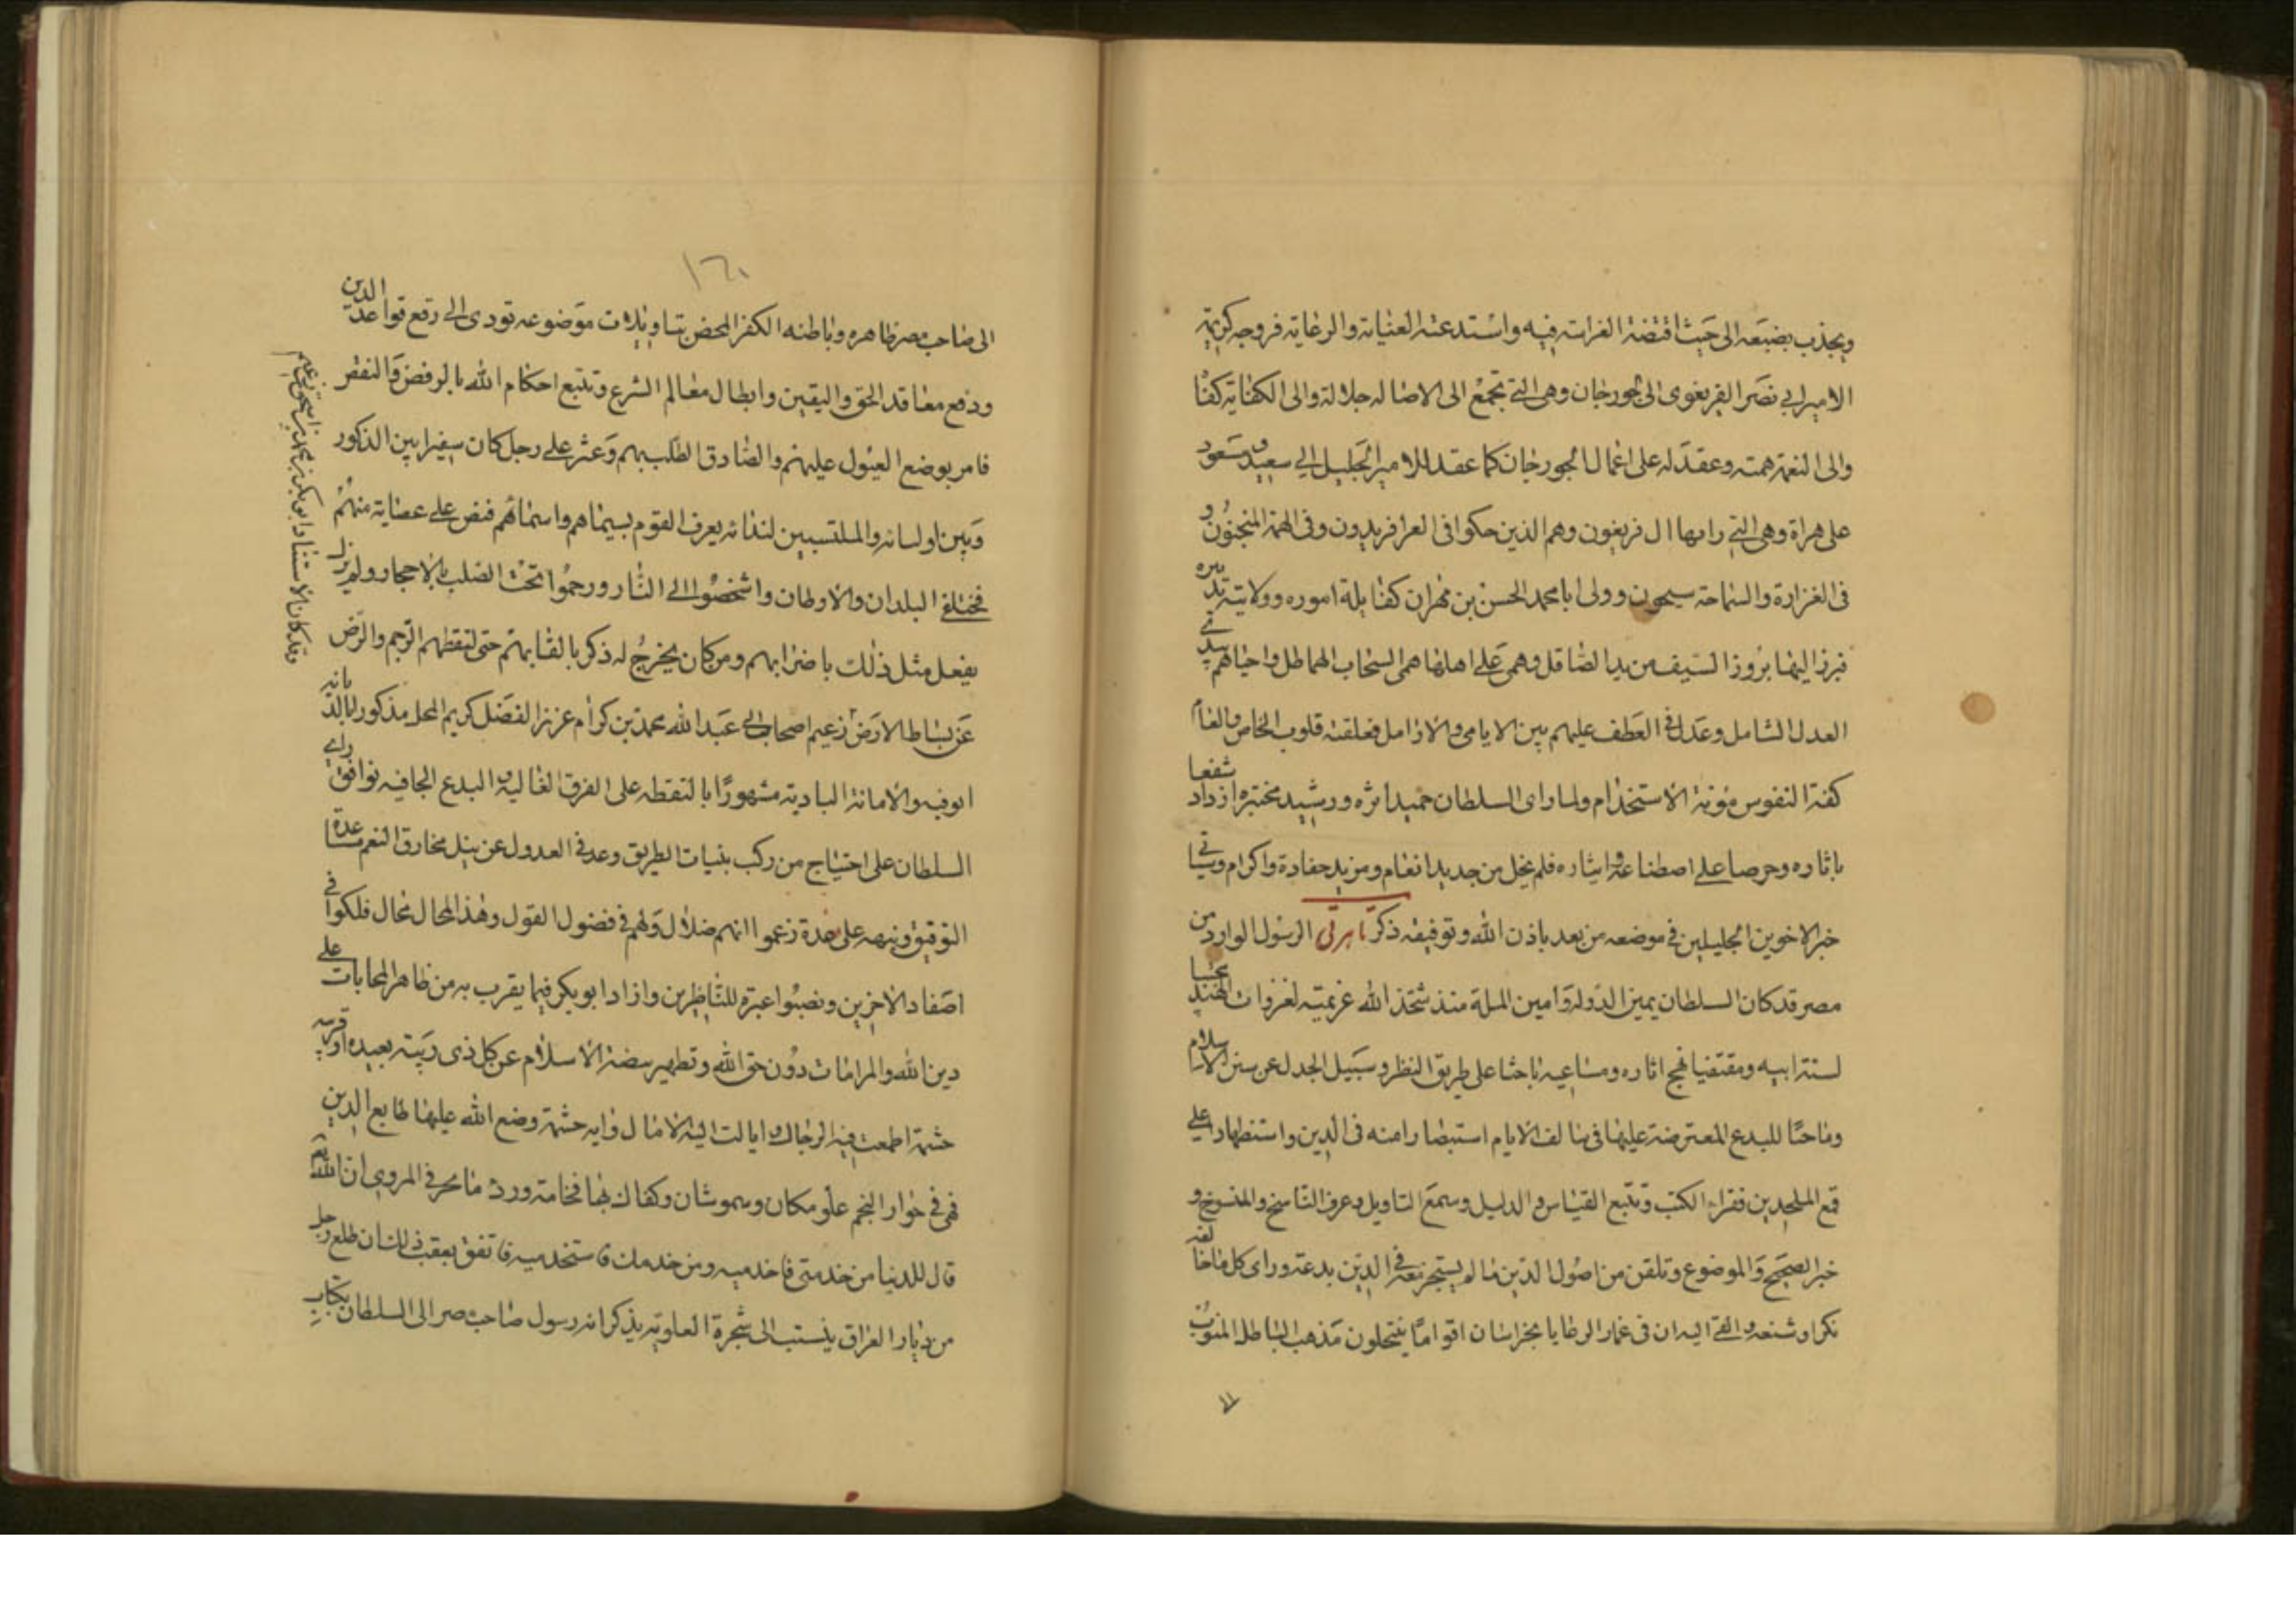 ويجذب بضبعه الى حيث اقتضته الفراسة فيه واستدعته العناية والرعاية فزوجه كريمة
الامير ابي نصر الفريغوى الى الجورجان وهى التي تجمع الى الاصالة جلالة والى الكفاية كفا
والى النعمة همته وعقد له على اعمال الجورجان كما عقد للامير الجليل ابي سعيد مسعود
على هراة وهى التي رامها ال فريغون وهم الذين حكوا فى العز افريدون وفى الهمة
فى الغزارة والسماحة سيحون وولى ابا محمد الحسن بن مهران كفاية اموره وولايته
فبرز اليها بروز السيف من يد الصاقل وهمى على اهلها همى السحاب الهاطل واحياهم
العدل الشامل وعدل فى العطف عليهم بين الايامى والارامل فعلقته قلوب الخاص والعام
كفة النفوس مؤنة الاستخدام ولما راى السلطان حميد اثره ورشيد مختبره ازداد شغفا
باثاره وحرصا على اصطناعه وايثاره فلم يخل من جديد انعام ومزيد حفادة واكرام وسياتى
خبر الاخوين الجليلين فى موضعه من بعد باذن الله وتوفيقه ذكر تاهرتى الرسول الوارد من
مصر قد كان السلطان يمين الدولة وامين الملة منذ شحذ الله عزيمته لغزوات الهند
لسنة ابيه ومقتفيا نهج اثاره ومساعيه باحثا على طريق النظر وسبيل الجدل عن سنن الاسلام
وماحيا للبدع المعترضة عليها فى سالف الايام استبصارا منه فى الدين واستظهارا على
قمع الملحدين فقراء الكتب وتتبع القياس والدليل وسمع التاويل وعرف الناسخ والمنسوخ و
خبر الصحيح والموضوع وتلقن من اصول الدين ما لم يستجز معه فى الدين بدعة وراى كل ما خالفه
نكرا وشنعه والقى اليه ان فى غمار الرعايا بخراسان اقواما ينتحلون مذهب الباطل المنسوب
١٦٠
الى صاحب مصر ظاهره وباطنه الكفر المحض بتاويلات موضوعه تودى الى رفع قواعد الدين
ودفع معاقد الحق واليقين وابطال معالم الشرع وتتبع احكام الله بالرفض والنقض
فامر بوضع العيون عليهم والصادق الطلب بهم وعثر على رجل كان سفيرا بين المذكور
وبين اوليائه والملتسبين لندائه يعرف القوم بسيماهم واسمائهم فنص على عصابة منهم
فختلفى البلدان والاوطان واشخصوا الى النار ورجموا تحت الصلب بالاحجار ولم يزل
يفعل مثل ذلك باضرابهم ومن كان يخرج له ذكر بالقابهم حتى لقطهم الرجم والرض
عن بساط الارض زعيم اصحاب ابي عبد الله محمد بن كرام عزيز الفضل كريم المحل مذكورا بالديانة
الوفيه والامانة البادية مشهورا بالتقطه على الفرق الغالية والبدع الجافيه فوافق راى
السلطان على اجتياح من ركب بنيات الطريق وعدة فى العدول عن سبل مخارق النعم مساعدة
التوفيق ونبهه على عدة زعموا انهم ضلال ولهم فى فضول القول وهذا المحال محال فلكوا فى
اصفاد الاخرين ونصبوا عبرة للناظرين وازداد ابو بكر فيما يقرب به من ظاهر المحابات على
دين الله والمرامات دون حق الله وتطهير بيضة الاسلام عن كل ذى ريبة بعيدة او قريبة
حشمة اطمعت فيه الرجال وامالت اليه الامال وايه حشمة وضع الله عليها طابع الدين
فهى فى جوار النجم علو مكان وسمو شان وكفاك بها فخامة ورد ما محر فى المروى ان الله
قال للدنيا من خدمنى فاخدميه ومن خدمك فاستخدميه فاتفق بعقب ذلك ان طلع رجل
من ديار العراق ينتسب الى شجرة العلوية يذكر انه رسول صاحب مصر الى السلطان بكتاب
وقد كان الاستاد ابو بكر بن محمد بن اسحق زعيم